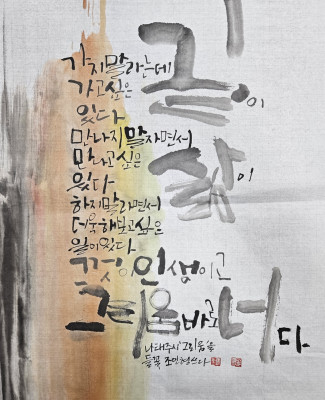 가지말라는데
가고싶은 길이
있다
만나지말자면서
만나고싶은 삶이
있다
하지말라면서
더욱해보고싶은
일이있다
그것이 인생이고
그리움 바로 너다
나태주시 '그리움'을
들꽃 쓰다